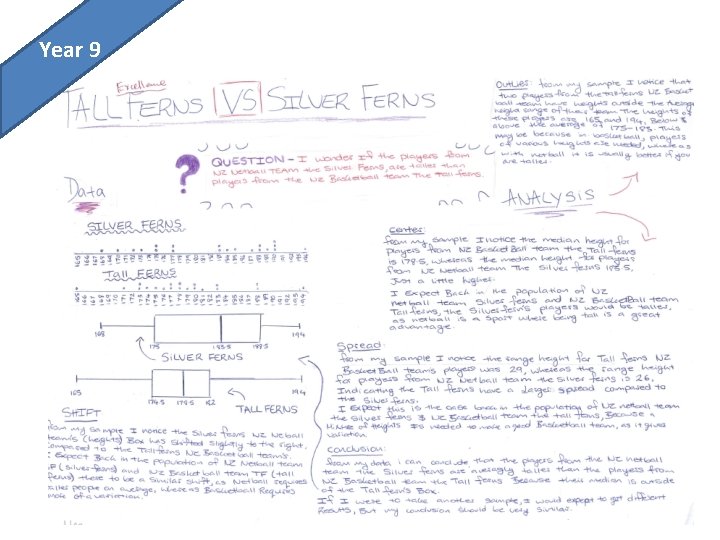 Year 9
Excellence
TALL FERNS VS SILVER FERNS
QUESTION - I wonder If the players from
NZ Netball TEAM the Silver Ferns, are taller than
players from the NZ Basketball team The Tall ferns.
Outlier: from my sample I notice that
two players from the tall ferns NZ Basket
ball team have heights outside the average
height range of their team. The heights of
these players are 165, and 194, Below &
above the average of 175-183. This
may be because in basketball, players
of various heights are needed, where as
with netball it is usually better if you
are taller.
Data
ANALYSIS
SILVER FERNS
TALL FERNS
168
194
175
185.5
188.5
SILVER FERNS
165
194
174.5 179.5 182
TALL FERNS
Center:
from my sample I notice the median height for
players from NZ BasketBall team the Tall ferns
is 178.5, whereas the median height for players
from NZ Netball team The Silver ferns 185.5,
Just a little higher.
I Expect Back in the population of NZ
netball team Silver ferns and NZ BasketBall team
Tall ferns, the Silver fern's players would be taller,
as netball is a sport where being tall is a great
advantage.
Spread:
from my sample I notice the range height for Tall ferns NZ
BasketBall team's players was 29, whereas the range height
for players from NZ Netball team the Silver ferns is 26,
Indicating the Tall ferns have a larger spread compared to
the Silver ferns.
I Expect this is the case back in the population of NZ netball team
the Silver ferns & NZ Basketball team the tall ferns, Because a
range of heights is needed to make a good Basketball team, as it gives
variation.
Conclusion:
from my data I can conclude that the players from the NZ netball
team the Silver ferns are averagly taller than the players from
NZ Basketball team the Tall ferns Because their median is outside
of the Tall fern's Box.
If I were to take another sample, I would expect to get different
Results, But my conclusion should be very similar.
SHIFT
from my sample I notice the Silver ferns NZ Netball
team's (heights) Box has shifted slightly to the right,
compared to the Tall ferns NZ Basketball team's.
I Expect Back in the population of NZ Netball team
SF (silver ferns) and NZ Basketball team TF (tall
ferns) there to be a similar shift, as Netball requires
taller people on average, where as Basketball Requires
more of a variation.